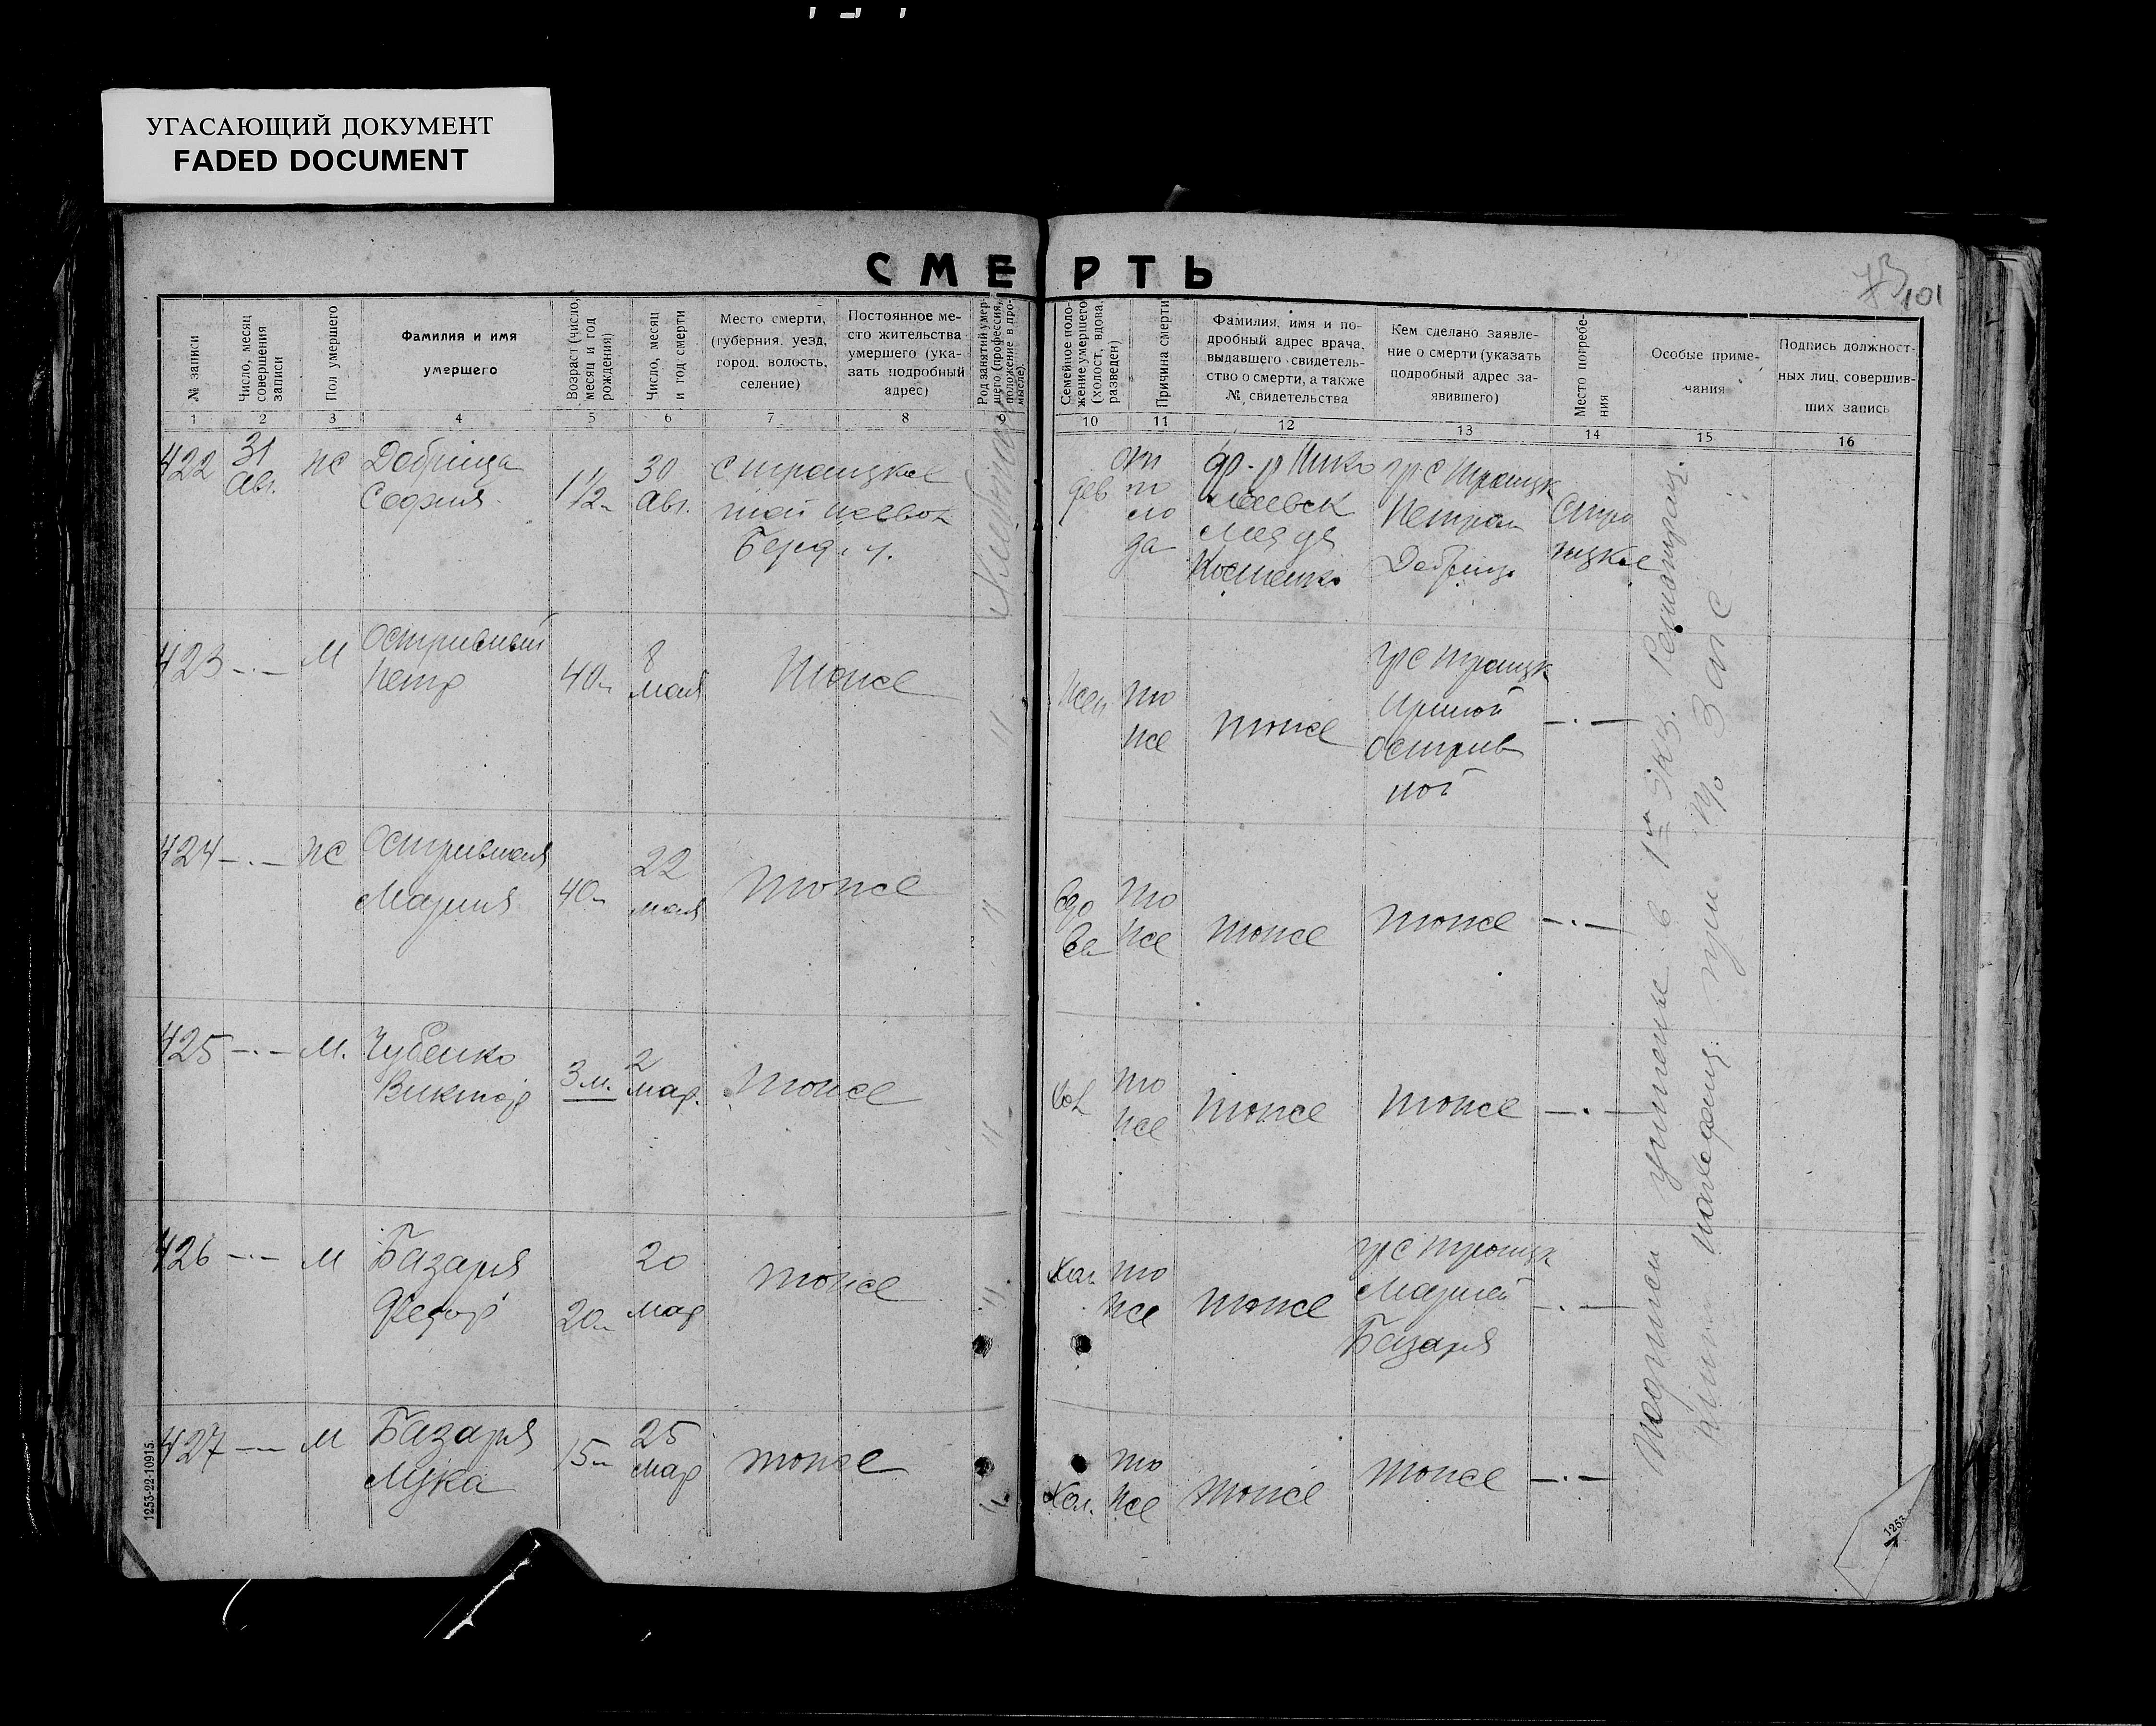 УГАСАЮЩИЙ ДОКУМЕНТ
FADED DOCUMENT
СМЕРТЬ
73 101
№ записи
Число, месяц совершения записи
Пол умершего
Фамилия и имя
умершего
Возраст (число, месяц и год рождения)
Число, месяц и год смерти
Место смерти,
(губерния, уезд,
город, волость,
селение)
Постоянное ме-
сто жительства
умершего (ука-
зать подробный
адрес)
Род занятий умер-
шего (профессия,
положение в про-
мысле).
Семейное поло-
жение умершего
(холост, вдова,
разведен)
Причина смерти
Фамилия, имя и по-
дробный адрес врача,
выдавшего свидетель-
ство о смерти, а также
№ свидетельства
Кем сделано заявле-
ние о смерти (указать
подробный адрес за-
явившего)
Место погребе-
ния
Особые приме-
чания
Подпись должност-
ных лиц, совершив-
ших запись
1 2 3 4 5 6 7 8 9 10 11 12 13 14 15 16
422
31
Авг.
ж
Добрица
София
1½
30
Авг.
С Троицкое
той
Берд. у.
дев
от
го
ло
да
др-р
гр С Троицк
Петром
Добрица
С Тро
ицкое
423 -·-
М
Остривный
Петр
40 л
8
мая
тоже
жен
то
же
тоже
гр С Троицк
Ириной
Острив
ной
-·-
424 -·- ж
Остривная
Мария
40 л
22
мая
тоже
Вдо
ва
то
же
тоже
тоже
-·-
425 -·- М.
Чубенко
Виктор
3 м.
2
мар.
тоже
хол
то
же
тоже
тоже
-·-
426 -·- М
Базаря
Федор
20 л
20
мар
тоже
Хол.
то
же
тоже
гр С Троицк
Марией
Базаря
-·-
427 -·- М
Базаря
Лука
15 л
25
мар
тоже
Хол.
то
же
тоже
тоже
-·-
в 1м экз.
Загс
1253-22-10915.
1253